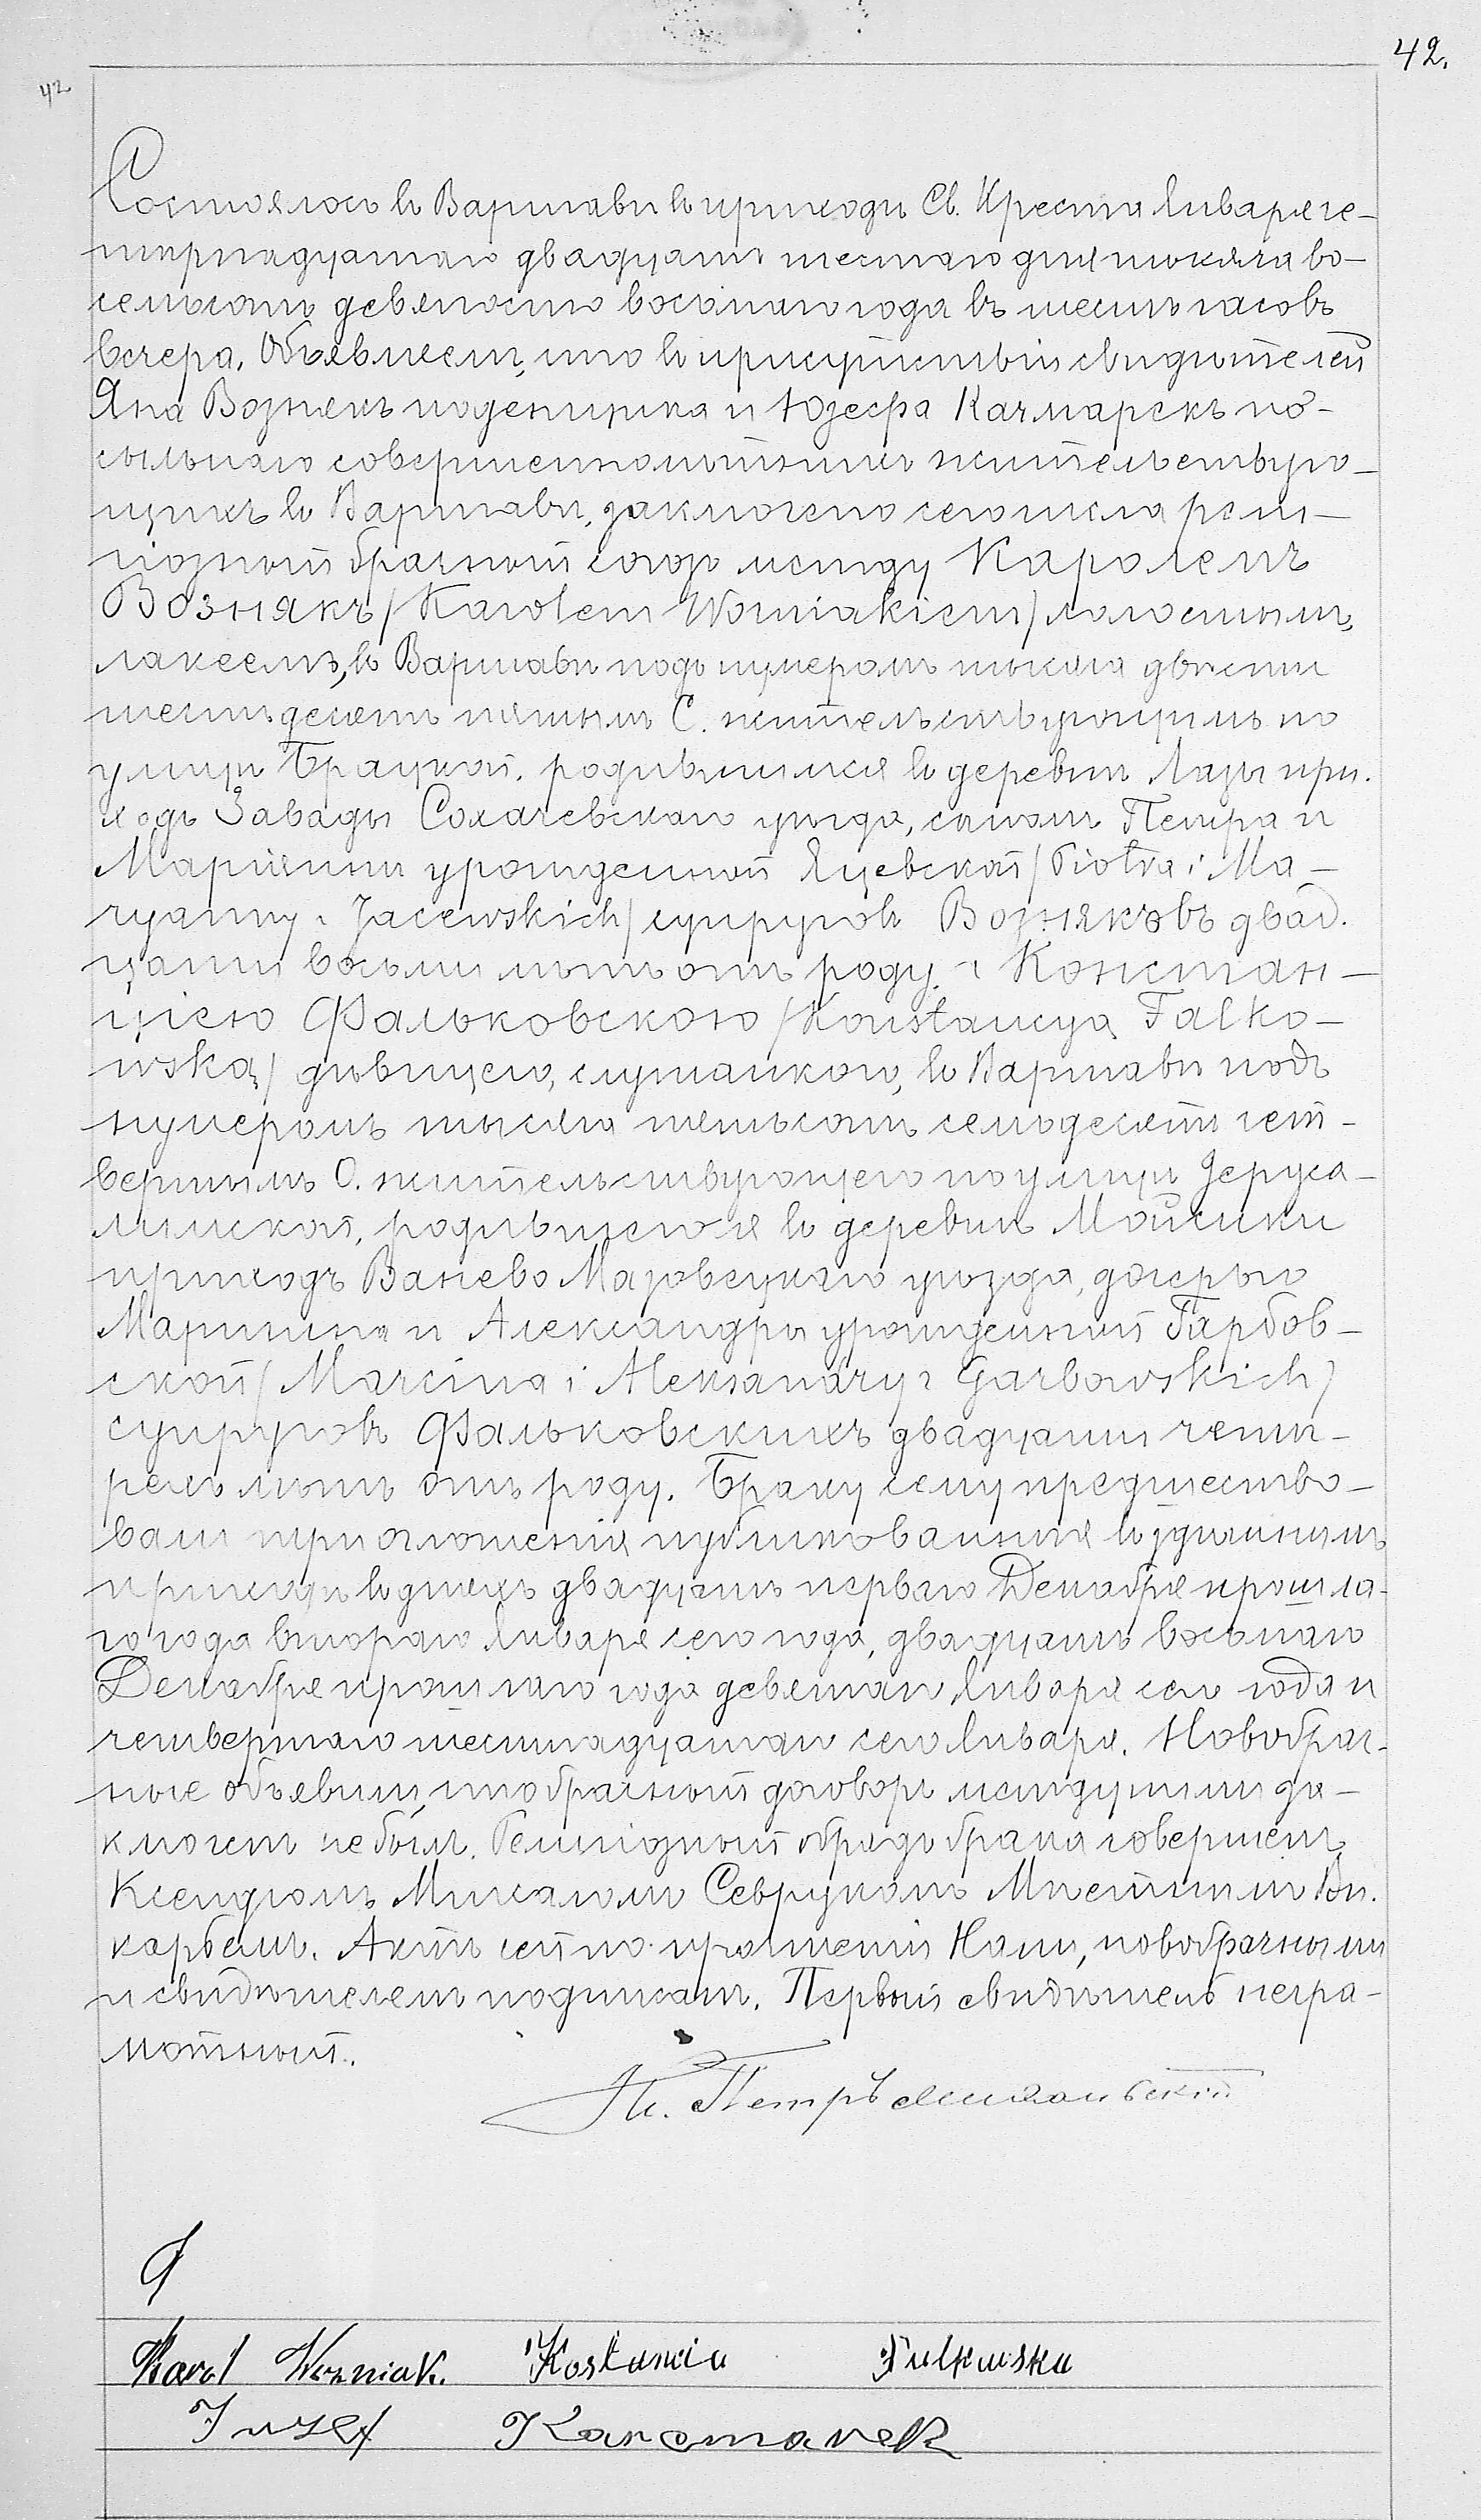 42.
42
Состоялось въ Варшавѣ въ приходѣ Св. Креста Января че-
тырнадцатаго двадцать шестаго дня тысяча во-
семьсотъ девяносто восьмаго года въ шесть часовъ
вечера. Объявляемъ, что въ присутствіи свидѣтелей
Яна Вознякъ поденщика и Юзефа Качмарекъ по-
сыльнаго совершеннолѣтнихъ жительствую-
щихъ въ Варшавѣ, заключено сего числа рели-
гіозный брачный союзъ между Каролемъ
Вознякъ /Karolem Woźniakiem/ холостымъ,
лакеемъ, въ Варшавѣ подъ нумеромъ тысяча двѣсти
шестьдесятъ пятымъ С. жительствующимъ по
улицѣ Брацкой, родившимся въ деревнѣ Лазы при.
ходъ Завады Сохачевскаго уѣзда, сыномъ Петра и
Маріянны урожденной Яцевской /Piotra i Ma-
ryanny z Jacewskich/ супруговъ Возняковъ двад.
цати восьми лѣтъ отъ роду, и Констан-
ціею Фальковскою /Konstancyą Falko-
wską/ дѣвицею, служанкою, въ Варшавѣ подъ
нумеромъ тысяча пятьсотъ семьдесятъ чет-
вертымъ О. жительствующею по улицѣ Іеруса-
лимской, родившеюся въ деревнѣ Мойсики
приходъ Ванево Мазовецкаго уѣзда, дочерью
Марцина и Александры урожденной Гарбов-
ской /Marcina i Aleksandry z Garbowskich/
супруговъ Фальковскихъ двадцати четы-
рехъ лѣтъ отъ роду. Браку сему предшество-
вали три оглошенія публикованныя въ здѣшнемъ
приходѣ въ дняхъ двадцать перваго Декабря прошла-
го года втораго Января сего года, двадцать восьмаго
Декабря прошлаго года девятаго Января сего года и
четвертаго шестнадцатаго сего Января. Новобрач-
ные объявили, что брачный договоръ между ними за-
ключенъ не былъ. Религіозный обрядъ брака совершенъ
Ксендзомъ Михаломъ Севрукомъ Мѣстнымъ Ви.
каріемъ. Актъ сей по прочтеніи Нами, новобрачными
и свидѣтелемъ подписанъ. Первый свидѣтель негра-
мотный.
Karol Wozniak. Kostancia Fulkowska
Juzef Karcmarek